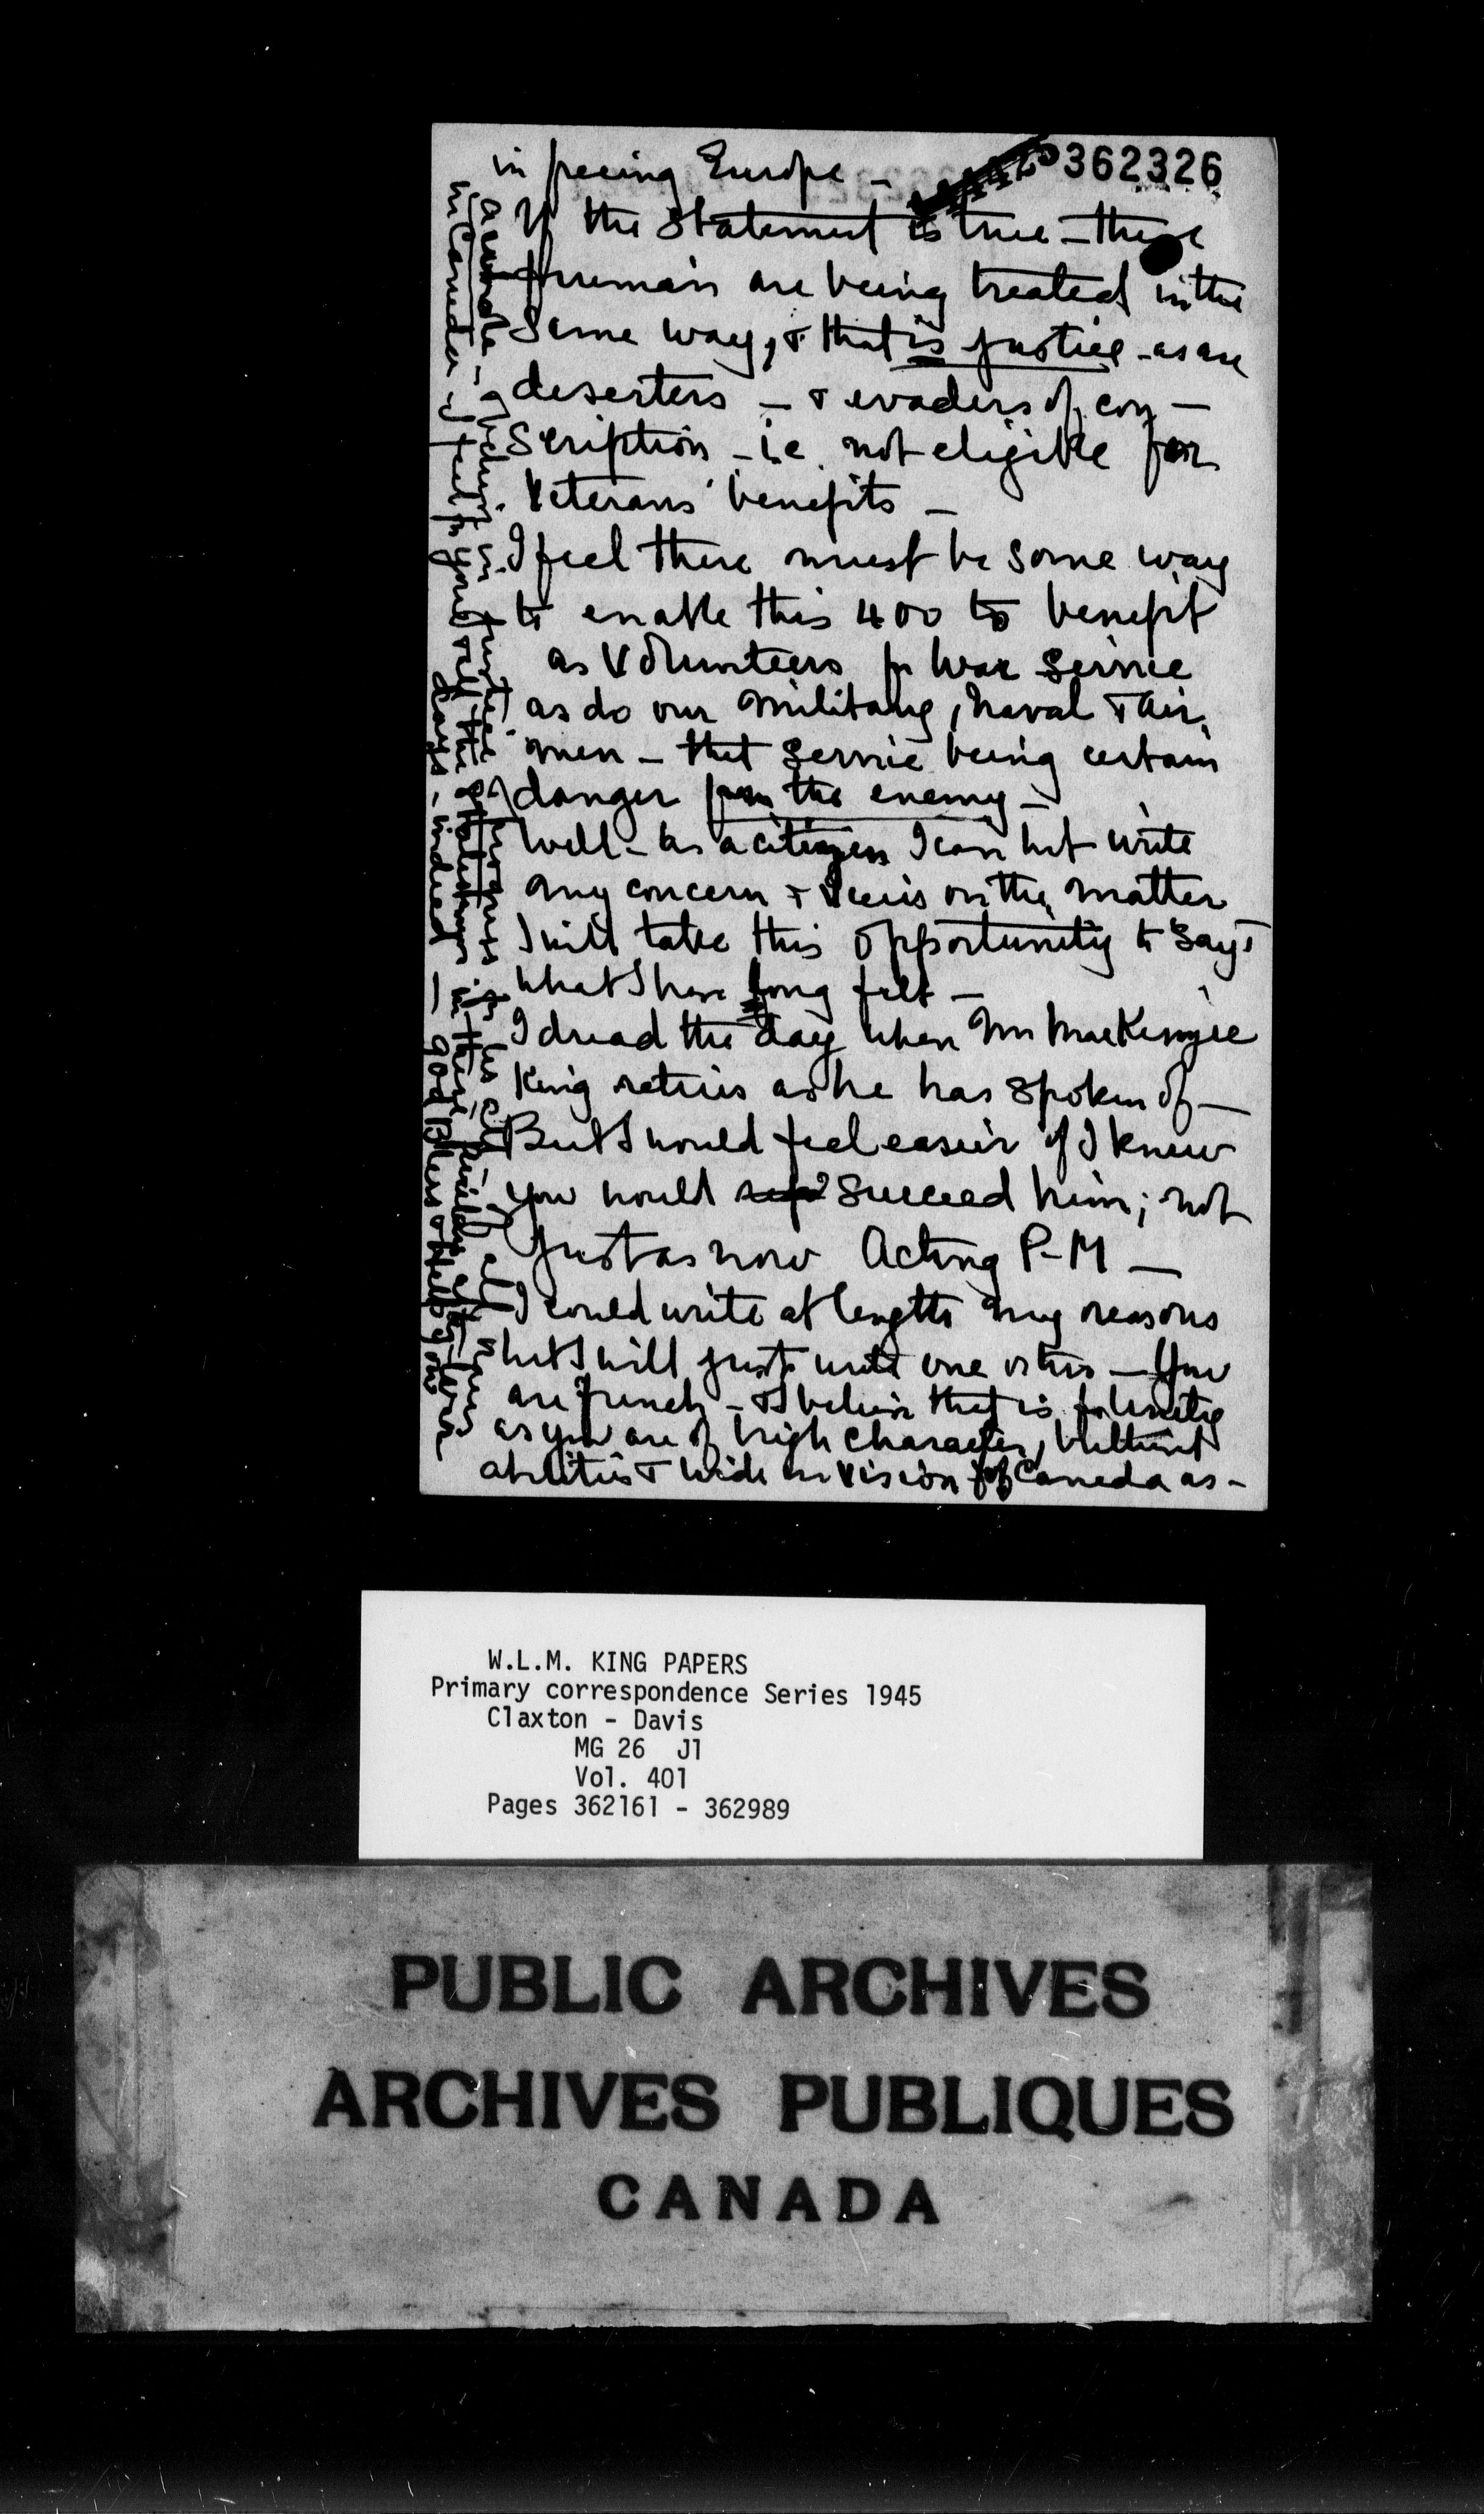 362326
in freeing Europe -
If the statement is true - these
firemen are being treated in the
same way, & that is justice - as are
deserters - & evaders of con -
scription - i.e. not eligible for
Veterans' benefits -
I feel there must be some way
to enable this 400 to benefit
as Volunteers for War Service
as do our military, naval & air
men - that service being certain
danger from the enemy -
Well - as a citizen I can but write
my concern & views on the matter
I will take this opportunity to say
what I have long felt -
I dread the day when Mr MacKenzie
King retires as he has spoken of -
But I would feel easier if I knew
you would succeed him; not
just as now Acting P-M -
I could write at length my reasons
but I will just write one or two - You
are French - & I believe that is for unity
as you are of high character, brilliant
abilities & wide in vision of Canada as -
a whole -
in Canada - I feel for you & all the statesmen in these
days - indeed - God Bless & Help you
W.L.M. KING PAPERS
Primary correspondence Series 1945
Claxton - Davis
MG 26 J1
Vol. 401
Pages 362161 - 362989
PUBLIC ARCHIVES
ARCHIVES PUBLIQUES
CANADA